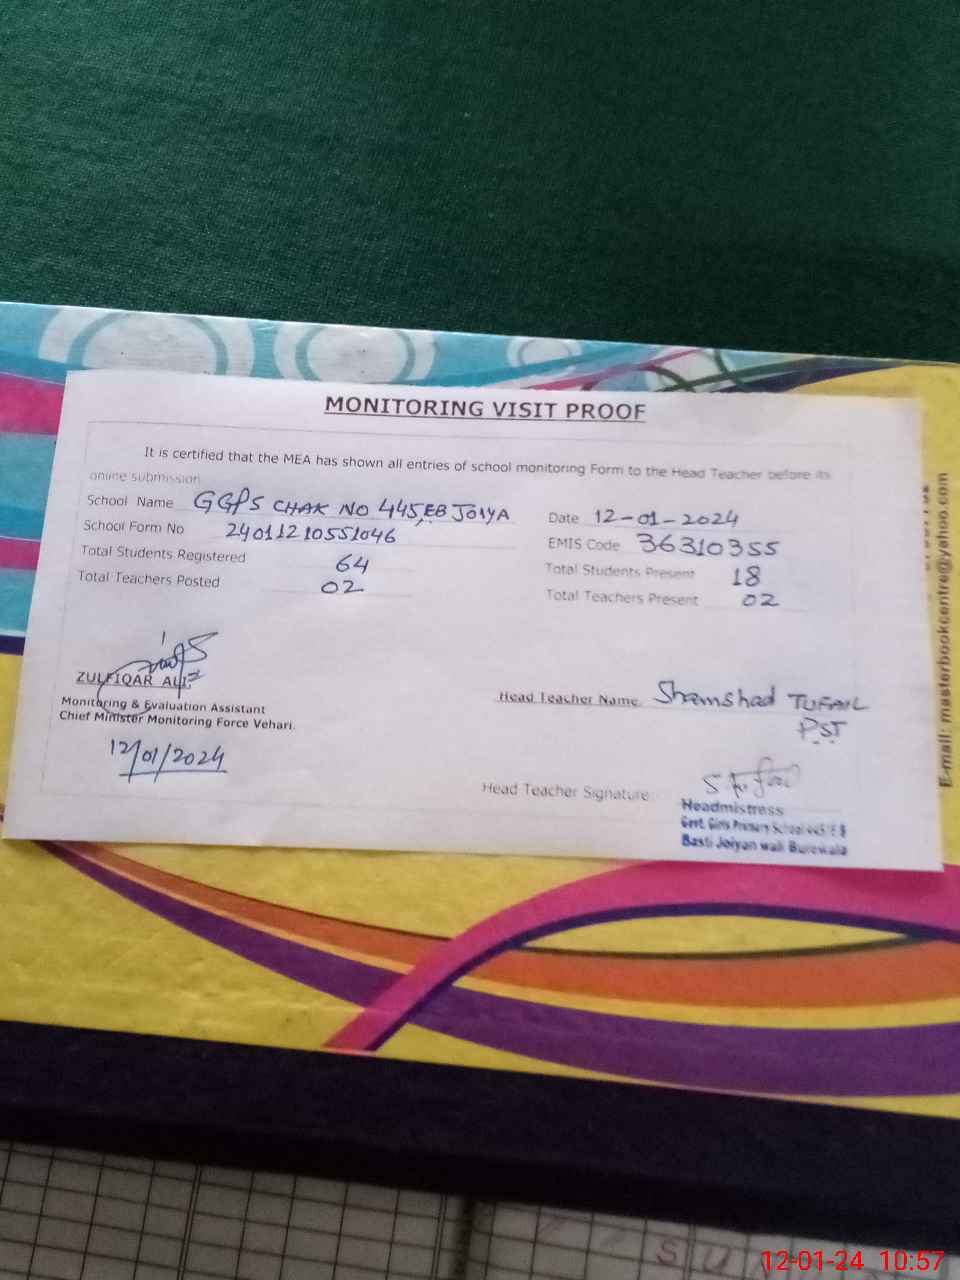 MONITORING VISIT PROOF
It is certified that the MEA has shown all entries of school monitoring Form to the Head Teacher before its
online submission
School Name GGPS CHAK NO 445,EB JOIYA
Date 12-01-2024
School Form No 24011210551046
EMIS Code 36310355
Total Students Registered 64
Total Students Present 18
Total Teachers Posted 02
Total Teachers Present 02
ZULFIQAR ALI
Monitoring & Evaluation Assistant
Chief Minister Monitoring Force Vehari.
12/01/2024
Head Teacher Name Shamshad TUFAIL
PST
Head Teacher Signature
Headmistress
Govt. Girls Primary School 445/E B
Basti Joiyan wali Burewala
E-mail: masterbookcentre@yahoo.com
S U
12-01-24 10:57